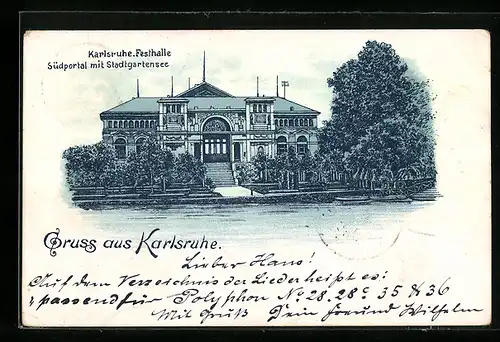 Karlsruhe. Festhalle
Südportal mit Stadtgartensee
Gruss aus Karlsruhe.
Lieber Hans!
Auf dem Verzeichnis der Lieder heißt es:
passend für Polyphon No 28, 28c 35 & 36
Mit Gruß Dein Freund Wilhelm